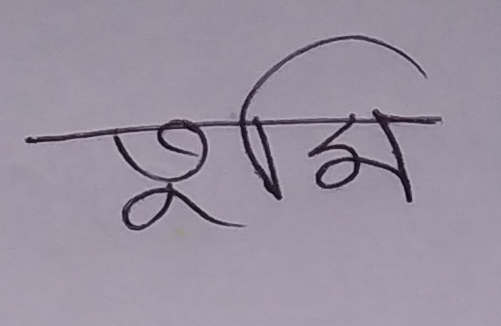 তুমি